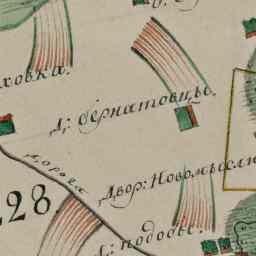 ховка.
Д: бернатовцы.
Дорога
Двор: Новомысли
228
Д: подобы.